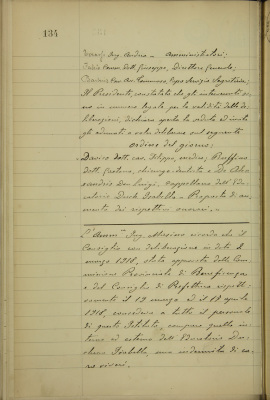 134
Ing. Andrea - Amministratori;
Comm. Dott. Giuseppe, Direttore Generale;
Cav. Avv. Tommaso Capo Servizio Segretario;
Il Presidente, constatato che gli intervenuti so-
no in numero legale per la validità delle de-
liberazioni, dichiara aperta la seduta ed invita
gli adunati a voler deliberare sul seguente
ordine del giorno:
Davico dott. cav. Filippo, medico; Ruffino
dott. Gaetano, chirurgo-dentista e De Ales-
sandris Don Luigi, Cappellano dell'Edu-
catorio Duch. Isabella - Proposta di au-
mento dei rispettivi onorari.
L'Amm.re Ing. ricorda che il
Consiglio con deliberazione in data 2
marzo 1918, stata approvata dalla Com-
missione Provinciale di Beneficenza
e dal Consiglio di Prefettura rispetti-
vamente il 12 marzo ed il 18 aprile
1918, concedeva a tutto il personale
di questo Istituto, compreso quello in-
terno ed esterno dell'Educatorio Du-
chessa Isabella, una indennità di ca-
ro viveri.